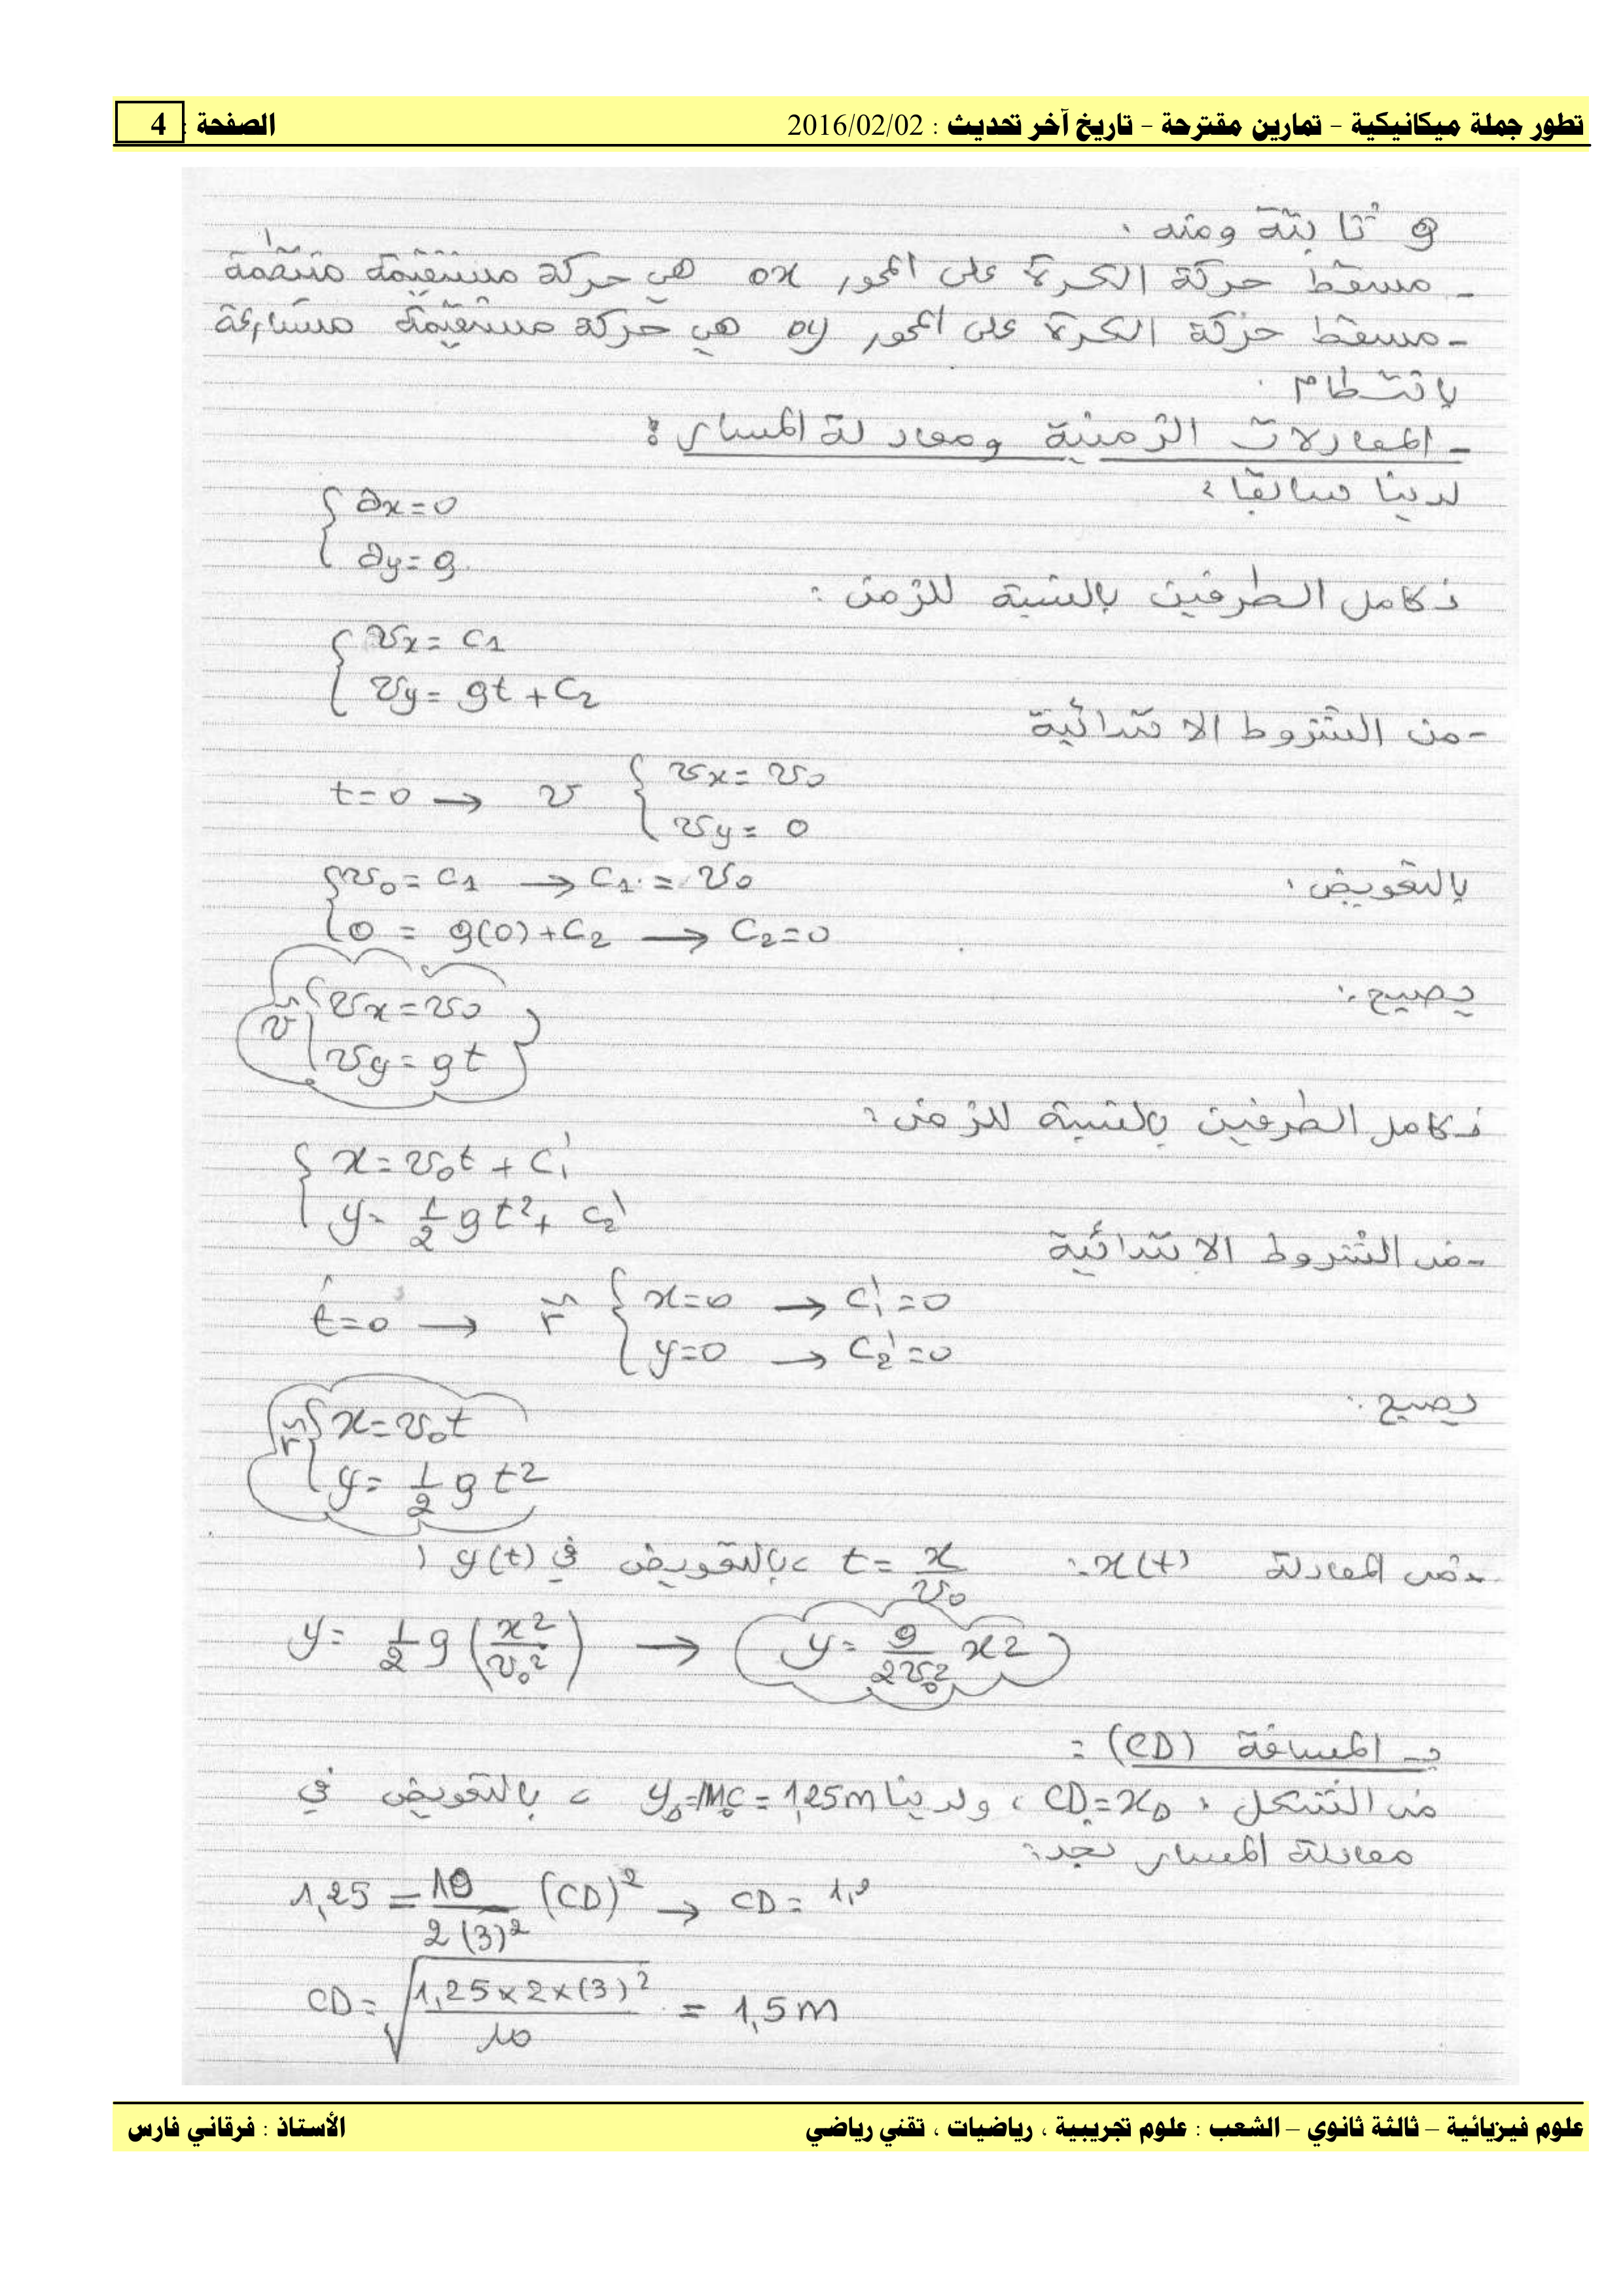 تطور جملة ميكانيكية - تمارين مقترحة - تاريخ آخر تحديث : 2016/02/02 الصفحة : 4
g ثابتة ومنه :
- مسقط حركة الكرة على المحور ox هي حركة مستقيمة منتظمة
- مسقط حركة الكرة على المحور oy هي حركة مستقيمة متسارعة
بانتظام .
- المعادلات الزمنية ومعادلة المسار :
لدينا سابقا :
{ ax = 0
{ ay = g
نكامل الطرفين بالنسبة للزمن :
{ vx = c1
{ vy = gt + c2
- من الشروط الابتدائية
t=0 → v { vx = v0
{ vy = 0
بالتعويض :
{ v0 = c1 → c1 = v0
{ 0 = g(0) + c2 → c2 = 0
يصبح :
v { vx = v0
{ vy = gt
نكامل الطرفين بالنسبة للزمن :
{ x = v0t + c1'
{ y = 1/2 gt² + c2'
- من الشروط الابتدائية
t=0 → r { x=0 → c1'=0
{ y=0 → c2'=0
يصبح :
r { x = v0t
{ y = 1/2 gt²
- من المعادلة x(t) : t = x/v0 ، بالتعويض في y(t) :
y = 1/2 g (x²/v0²) → y = g/2v0² x²
المسافة (CD) :
من الشكل : CD = xD ، ولدينا yD = MC = 1,25m ، بالتعويض في
معادلة المسار نجد :
1,25 = 10/2(3)² (CD)² → CD =
CD = √(1,25×2×(3)²/10) = 1,5 m
علوم فيزيائية – ثالثة ثانوي – الشعب : علوم تجريبية ، رياضيات ، تقني رياضي الأستاذ : فرقاني فارس